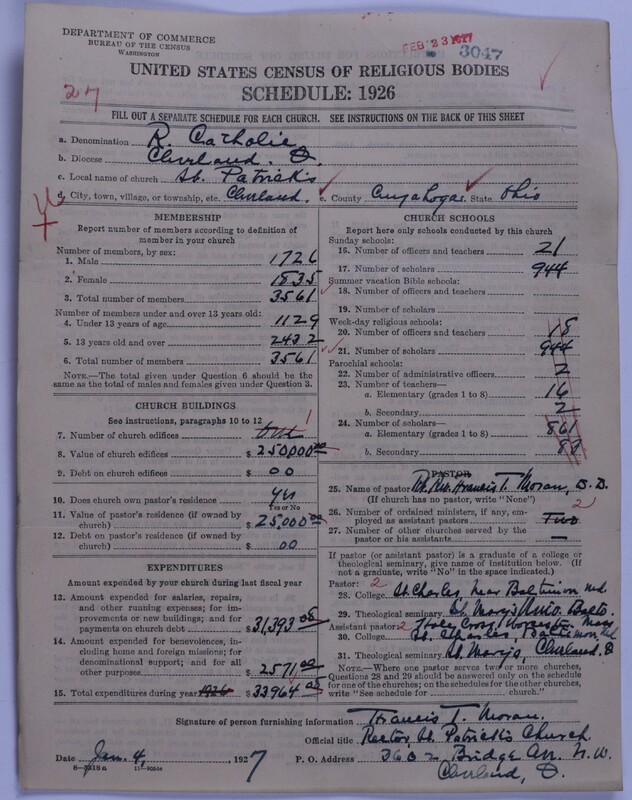 DEPARTMENT OF COMMERCE
BUREAU OF THE CENSUS
WASHINGTON
FEB 23 1927
3047
UNITED STATES CENSUS OF RELIGIOUS BODIES
SCHEDULE: 1926
27
FILL OUT A SEPARATE SCHEDULE FOR EACH CHURCH. SEE INSTRUCTIONS ON THE BACK OF THIS SHEET
a. Denomination R. Catholic
b. Diocese Cleveland. O.
c. Local name of church St. Patrick's
d. City, town, village, or township, etc. Cleveland. e. County Cuyahoga. State Ohio
MEMBERSHIP
Report number of members according to definition of member in your church
Number of members, by sex:
1. Male 1726
2. Female 1835
3. Total number of members 3561
Number of members under and over 13 years old:
4. Under 13 years of age 1129
5. 13 years old and over 2432
6. Total number of members 3561
NOTE.—The total given under Question 6 should be
same as the total of males and females given under Question 3.
CHURCH BUILDINGS
See instructions, paragraphs 10 to 12
7. Number of church edifices One 1
8. Value of church edifices $ 250000 00
9. Debt on church edifices $ 00
10. Does church own pastor's residence Yes
Yes or No
11. Value of pastor's residence (if owned by
church) $ 25,000 00
12. Debt on pastor's residence (if owned by
church) $ 00
EXPENDITURES
Amount expended by your church during last fiscal year
13. Amount expended for salaries, repairs,
and other running expenses; for im-
provements or new buildings; and for
payments on church debt $ 31,393 05
14. Amount expended for benevolences, in-
cluding home and foreign missions; for
denominational support; and for all
other purposes $ 2571 00
15. Total expenditures during year 1926 $ 33964 05
CHURCH SCHOOLS
Report here only schools conducted by this church
Sunday schools:
16. Number of officers and teachers 21
17. Number of scholars 944
Summer vacation Bible schools:
18. Number of officers and teachers
19. Number of scholars
Week-day religious schools:
20. Number of officers and teachers 18
21. Number of scholars 944
Parochial schools:
22. Number of administrative officers 2
23. Number of teachers—
a. Elementary (grades 1 to 8) 16
b. Secondary 2
24. Number of scholars—
a. Elementary (grades 1 to 8) 861
b. Secondary 83
PASTOR
25. Name of pastor Rt. Rev. Francis T. Moran, D.D.
(If church has no pastor, write "None")
26. Number of ordained ministers, if any, em-
ployed as assistant pastors Two 2
27. Number of other churches served by the
pastor or his assistants —
If pastor (or assistant pastor) is a graduate of a college or
theological seminary, give name of institution below. (If
not a graduate, write "No" in the space indicated.)
Pastor: 2
28. College St Charles, near Baltimore Md.
29. Theological seminary St. Mary's Univ. Balto.
Assistant pastor: 2 Holy Cross, Worcester Mass
30. College St. Charles, Baltimore, Md
31. Theological seminary St. Mary's, Cleveland. O
NOTE.—Where one pastor serves two or more churches,
Questions 28 and 29 should be answered only on the schedule
for one of the churches; on the schedules for the other churches,
write "See schedule for church."
Signature of person furnishing information Francis T. Moran.
Official title Rector, St. Patrick's Church
Date Jan. 4, 1927 P. O. Address 3602 Bridge Av. N.W.
8—3318a 11—9050a Cleveland, O.